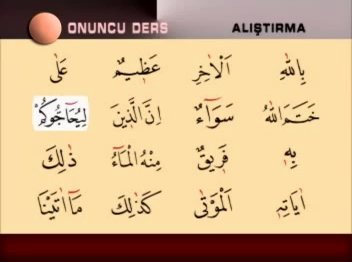 ONUNCU DERS ALIŞTIRMA
بِاللّٰهِ اَلْاٰخِرِ عَظِيمٌ عَلٰى
خَتَمَ اللّٰهُ سَوَٓاءٌ اِنَّ الَّذِينَ لِيُحَٓاجُّوكُمْ
بِهٖ فَرِيقٌ مِنْهُ الْمَٓاءُ ذٰلِكَ
اٰيَاتِهٖ الْمَوْتٰى كَذٰلِكَ مَٓا اٰتَيْنَا